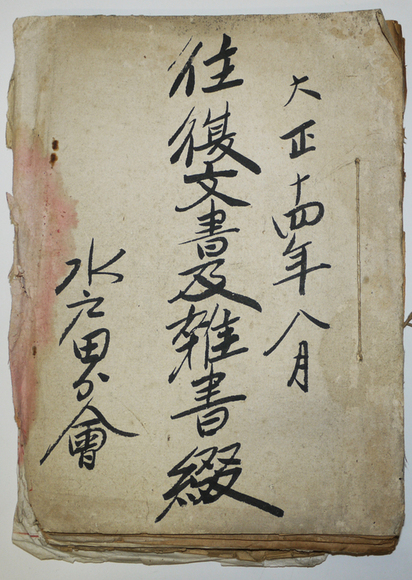 大正十四年八月
往復文書及雑書綴
水戸田分會